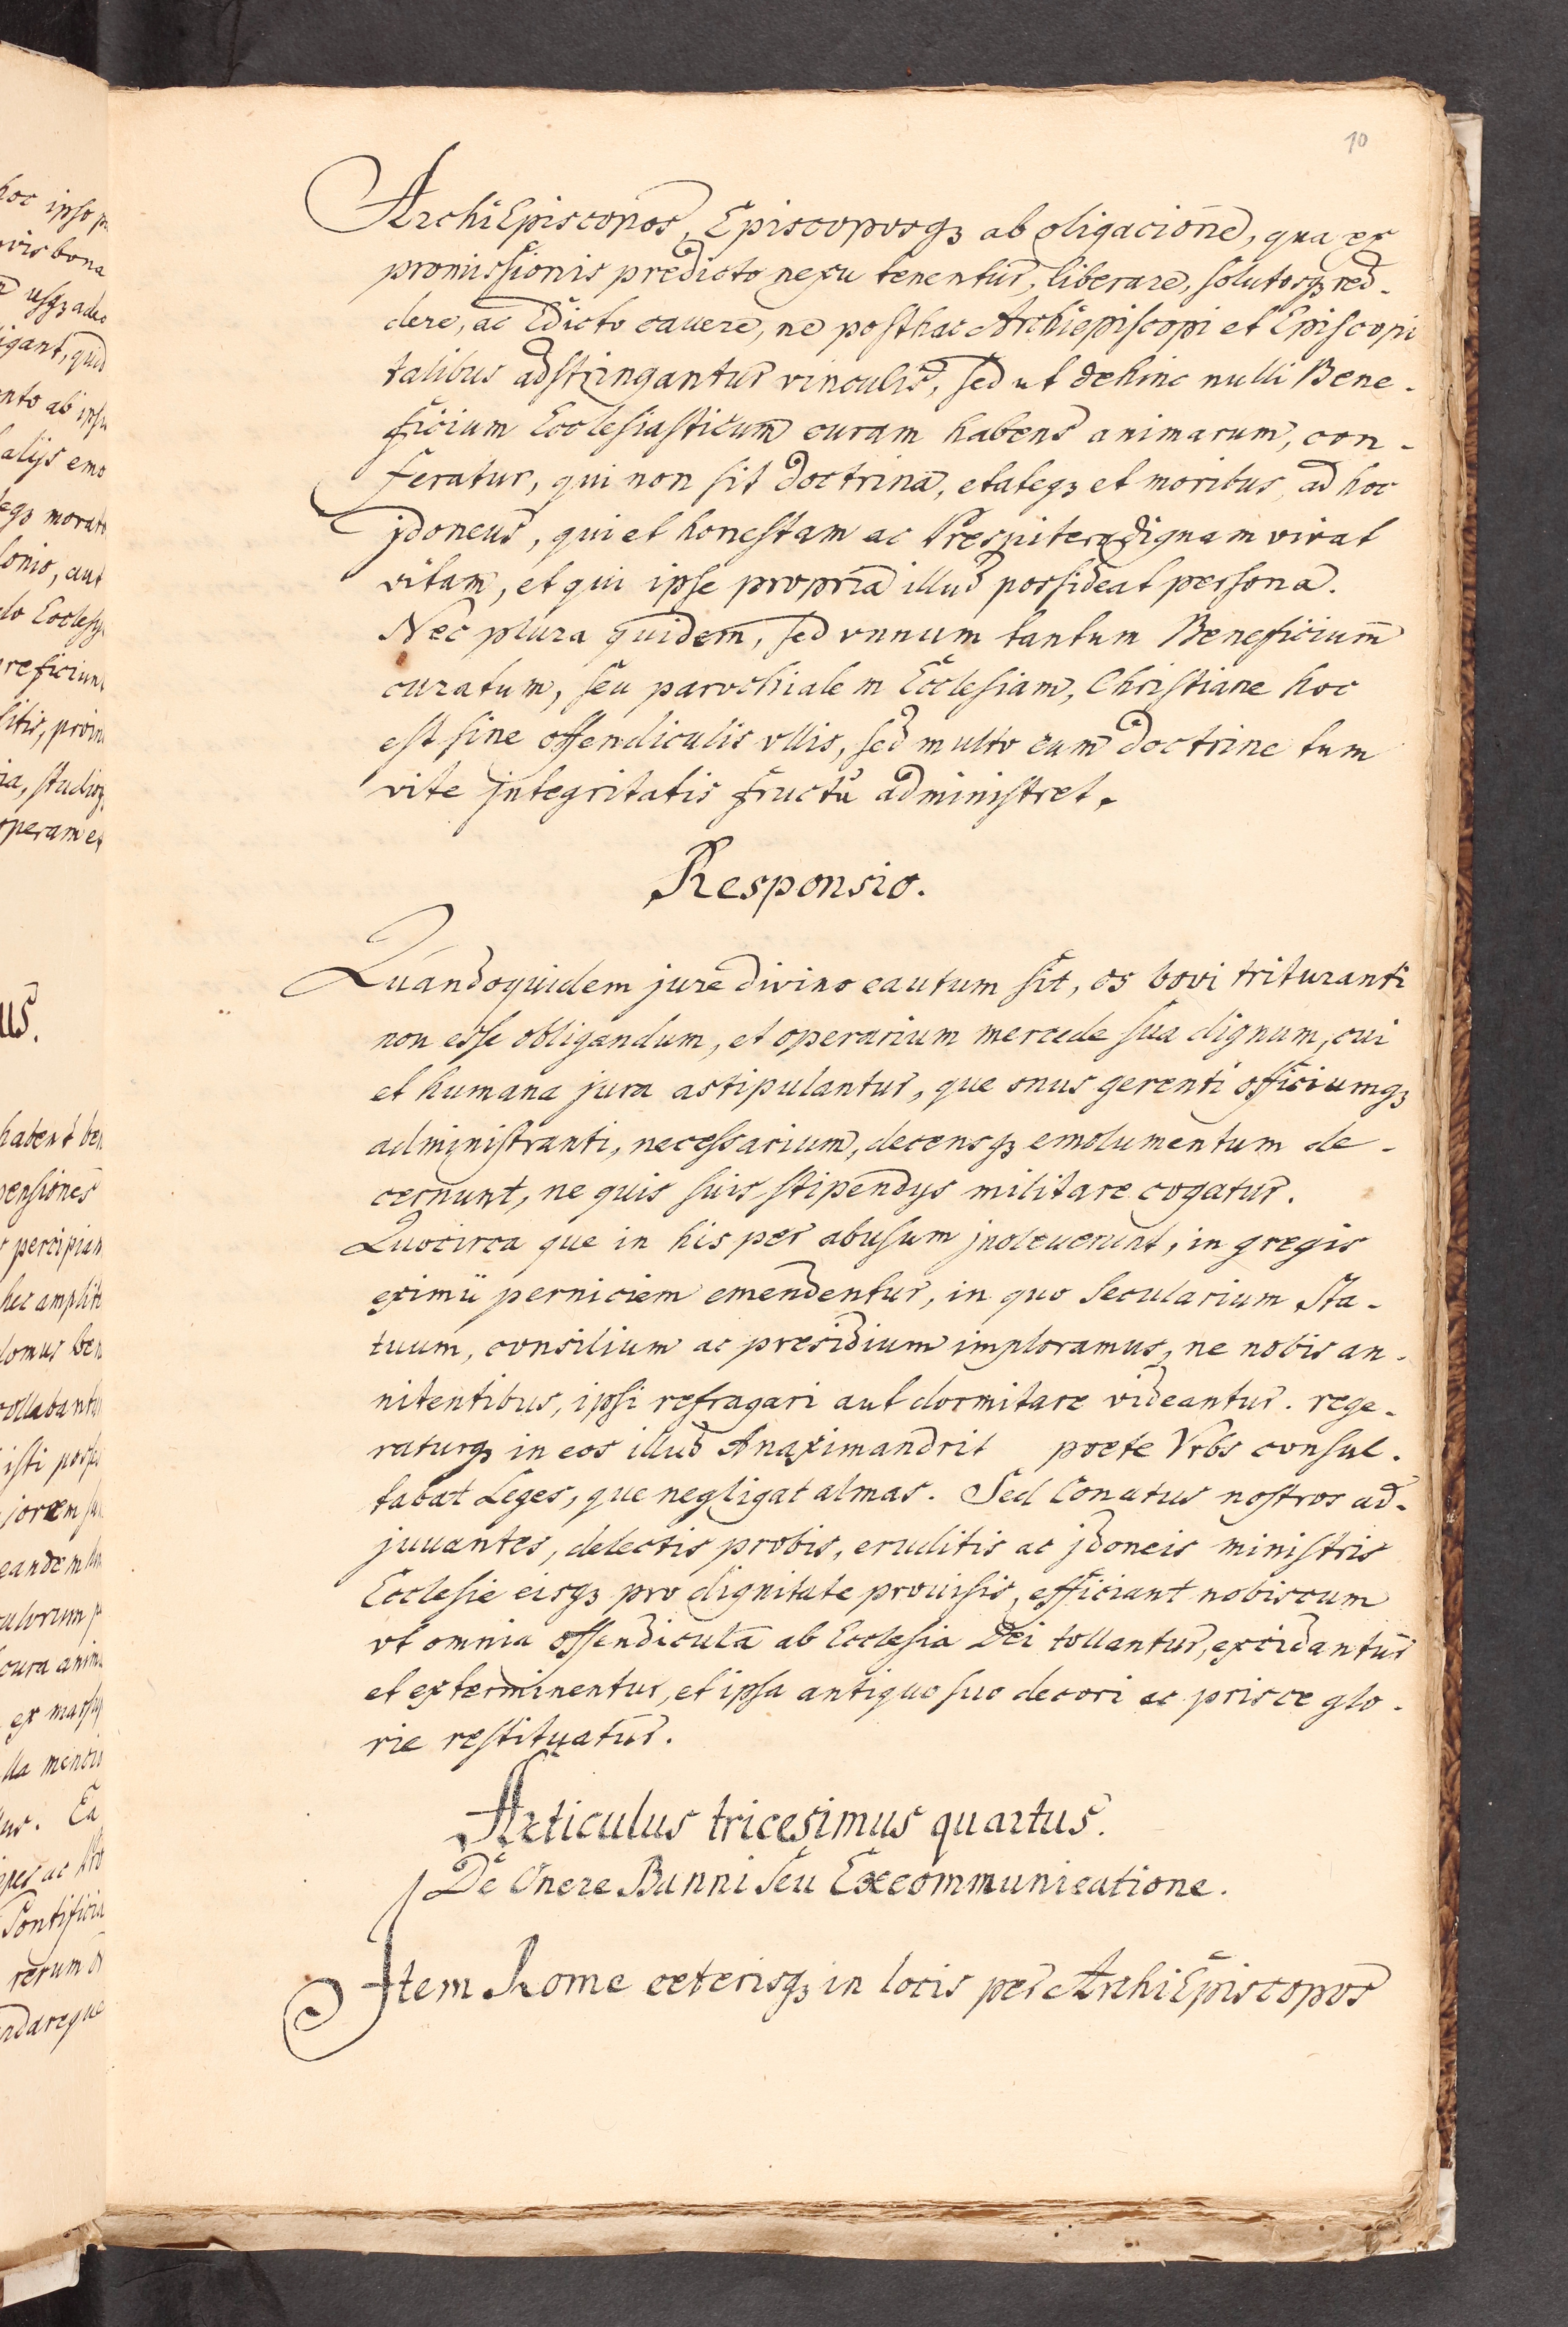 10
ArchiEpiscopos, Episcoposqꝫ ab oligacione, qua ex
promissionis predicto nexu tenentur, liberare, solutosqꝫ red-
dere, ac Edicto cauere, ne posthac Archiepiscopi et Episcopi
talibus adstringantur vinculis, sed ut dehinc nulli Bene-
ficium Ecclesiasticum curam habens animarum, con-
feratur, qui non sit doctrina, etateqꝫ et moribus ad hoc
jdoneus, qui et honestam ac Prespitero dignam vivat
vitam, et qui ipse propria illud possideat persona.
Nec plura quidem, sed vnnum tantum Beneficium
curatum, seu parochialem Ecclesiam, Christiane hoc
est sine offendiculis vllis, sed multo cum doctrine tum
vite jntegritatis fructu administret.
Responsio.
Quandoquidem jure divino cautum sit, os bovi trituranti
non esse obligandum, et operarium mercede sua dignum, cui
et humana jura astipulantur, que onus gerenti officiumqꝫ
administranti, necessarium, decensqꝫ emolumentum de-
cernunt, ne quis suis stipendys militare cogatur.
Quocirca que in his per abusum jnoleuerunt, in gregis
eximii perniciem emendentur, in quo Secularium Sta-
tuum, consilium ac presidium imploramus, ne nobis an-
nitentibus, ipsi refragari aut dormitare videantur. rege-
raturqꝫ in eos illud Anaximandrit poete Vrbs consul-
tabat Leges, que negligat almas. Sed Conatus nostros ad-
juuantes, delectis probis, eruditis ac jdoneis ministris
Ecclesie eisqꝫ pro dignitate prouisis, efficiant nobiscum
vt omnia offendicula ab Ecclesia Dei tollantur, excidantur
et exterminentur, et ipsa antiquo suo decori ac prisce glo-
rie restituatur.
Articulus tricesimus quartus.
De Onere Banni seu Excommunicatione.
Jtem Rome ceterisqꝫ in locis per ArchiEpiscopos